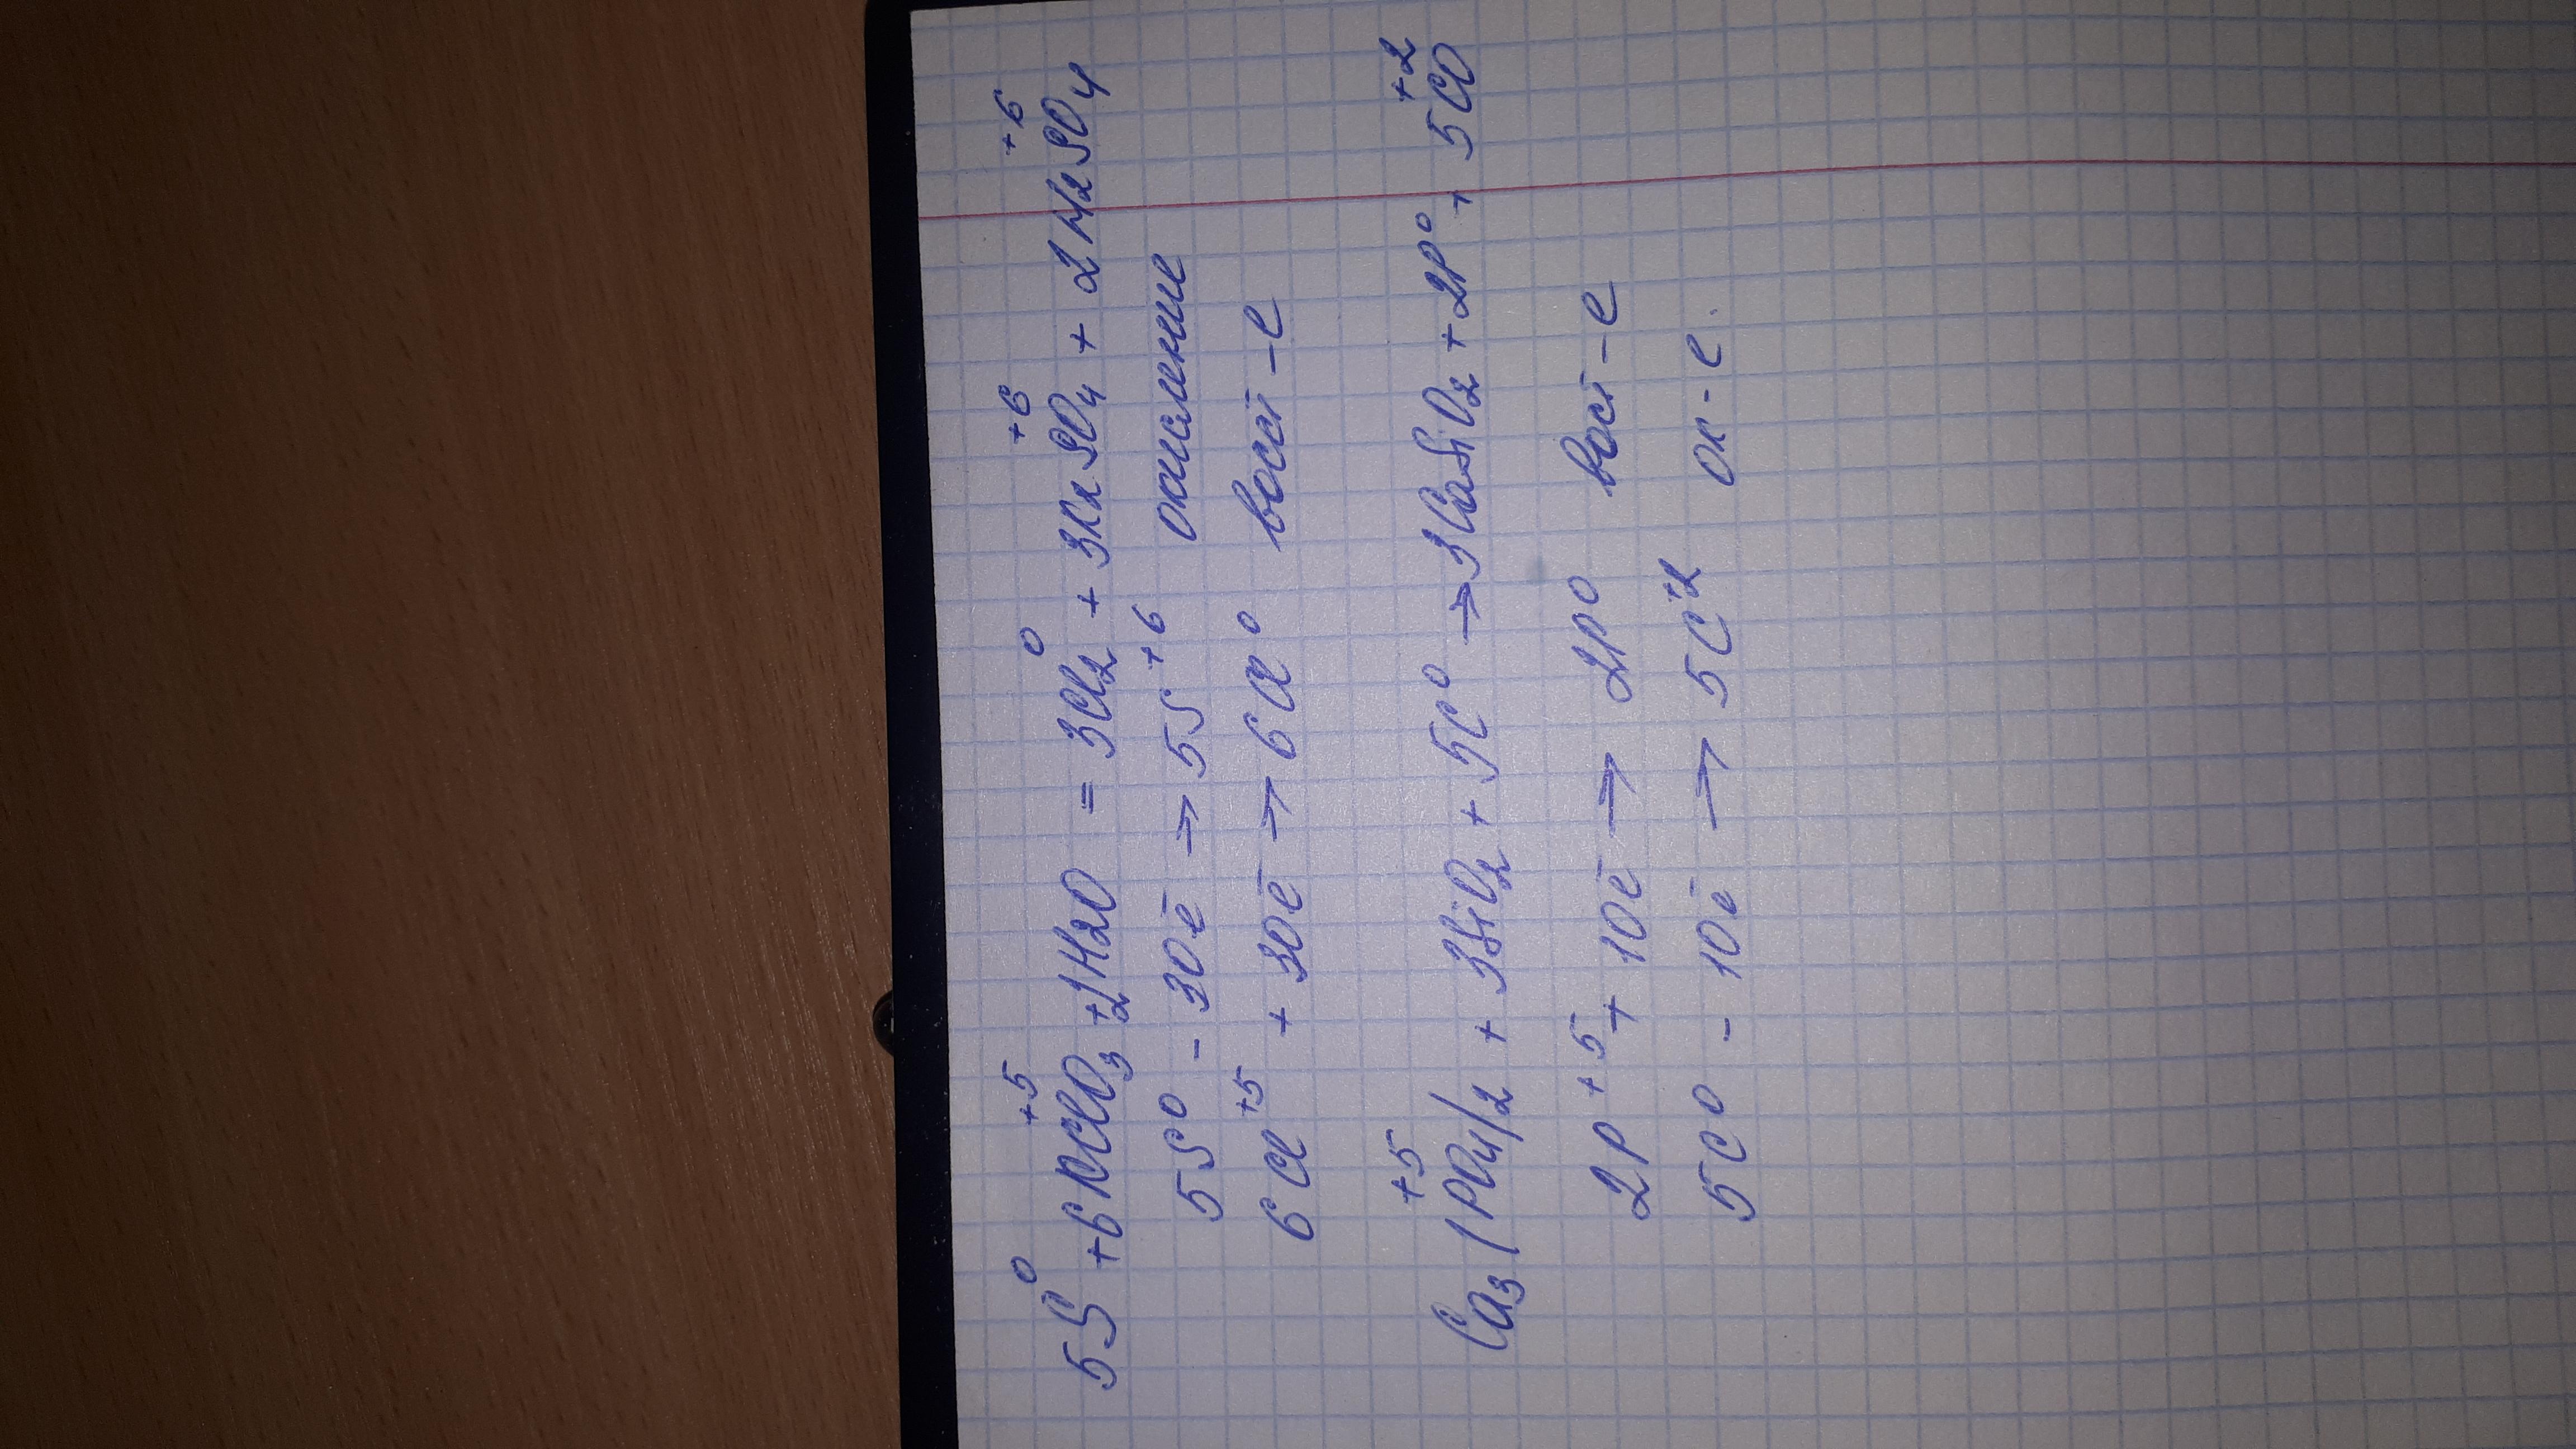 5S⁰ + 6KClO₃⁺⁵ + 2H₂O = 3Cl₂⁰ + 3K₂SO₄⁺⁶ + 2H₂SO₄⁺⁶
5S⁰ - 30ē → 5S⁺⁶ окисление
6Cl⁺⁵ + 30ē → 6Cl⁰ восст-е
Ca₃(PO₄)₂⁺⁵ + 3SiO₂ + 5C⁰ → 3CaSiO₂ + 2P⁰ + 5CO⁺²
2P⁺⁵ + 10ē → 2P⁰ вост-е
5C⁰ - 10ē → 5C⁺² ок-е.